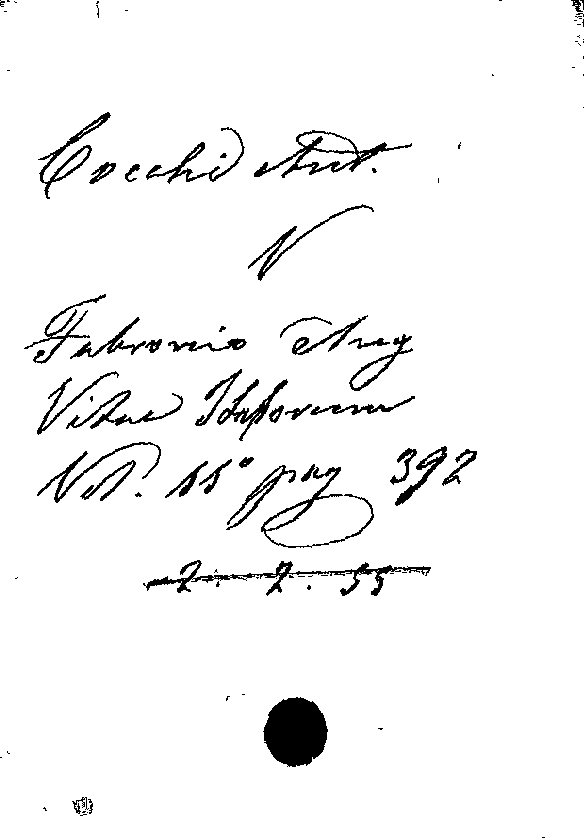 Cocchi Ant.
V
Fabronio Ang
Vitae Italorum
Vol. 11° pag 392
2. 2. 55